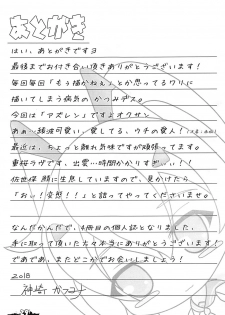 あとがき
はい、あとがきですヨ
最後までお付き合い頂きありがとうございます!
毎回毎回「もう描かねぇ」とか思ってるワリに
描いてしまう病気の かつみデス。
今回は「アズレン」ですよオクサン
あぁ…綾波可愛い、愛してる、ウチの愛人!
最近は、ちょっと触れ気味ですが頑張ってます。
重桜ラブです、出雲…時間かかりすぎぃ!!
佐世保鎮に生息していますので、見かけたら
「おぃ!変態!!」と詰ってやってくださいませ。
なんだかんだで、4冊目の個人誌となりました。
手に取って頂いた々々本当にありがとうございます!
であであ、またどこかでお会いしましょう!
2018
神崎 かつみ